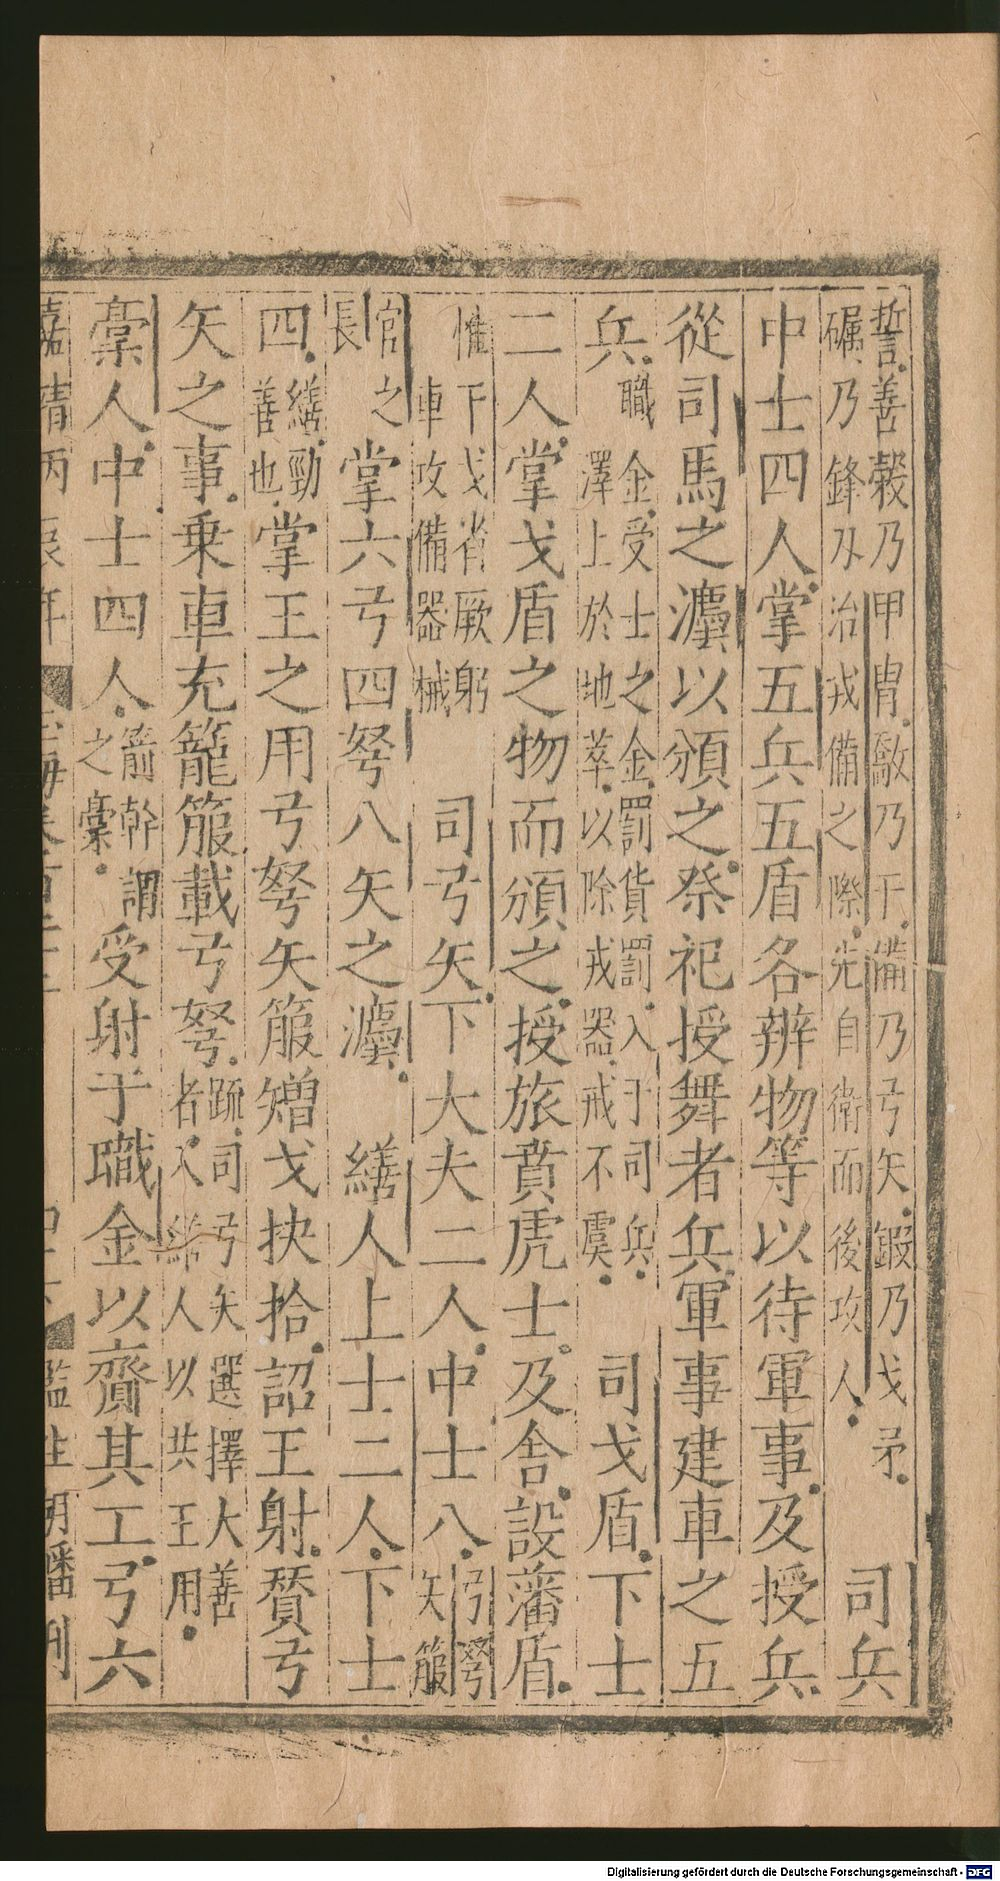 誓善榖乃甲冑敽乃干備乃弓矢鍜乃戈矛
礪乃鋒刃治戎備之際先自衛而後攻人
司兵
中士四人掌五兵五盾各辨物等以待軍事及授兵
從司馬之灋以頒之祭祀授舞者兵軍事建車之五
兵
職金受士之金金罰貨罰入于司兵
澤上於地萃以除戎器戒不虞
司戈盾下士
二人掌戈盾之物而頒之授旅賁虎士及舍設藩盾
惟干戈省厥躬
車攻備器械
司弓矢下大夫二人中士八
弓弩
矢箙
官之
長
掌六弓四弩八矢之灋
繕人上士二人下士
四
繕勁
善也
掌王之用弓弩矢箙矰戈抉拾詔王射贊弓
矢之事乗車充籠箙載弓弩
疏司弓矢選擇大善
者入繕人以共王用
槀人中士四人
箭幹謂
之槀
受財于職金以齎其工弓六
嘉靖丙辰年
監生胡潘刊
Digitalisierung gefördert durch die Deutsche Forschungsgemeinschaft - DFG